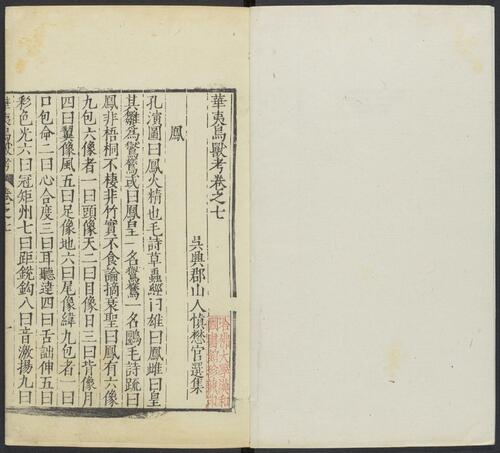 華夷鳥獸考卷之七
吳興郡山人慎懋官選集
鳳
孔演圖曰鳳火精也毛詩草蟲經曰雄曰鳳雌曰皇
其雛為鸑鷟或曰鳳皇一名鸑鷟一名鶠毛詩疏曰
鳳非梧桐不棲非竹實不食論摘衰聖曰鳳有六像
九包六像者一曰頭像天二曰目像日三曰背像月
四曰翼像風五曰足像地六曰尾像緯九包者一曰
口包命二曰心合度三曰耳聽達四曰舌詘伸五曰
彩色光六曰冠矩州七曰距銳鈎八曰音激揚九曰
華夷鳥獸考 卷之七 一
哈佛大學漢和
圖書館珍藏印